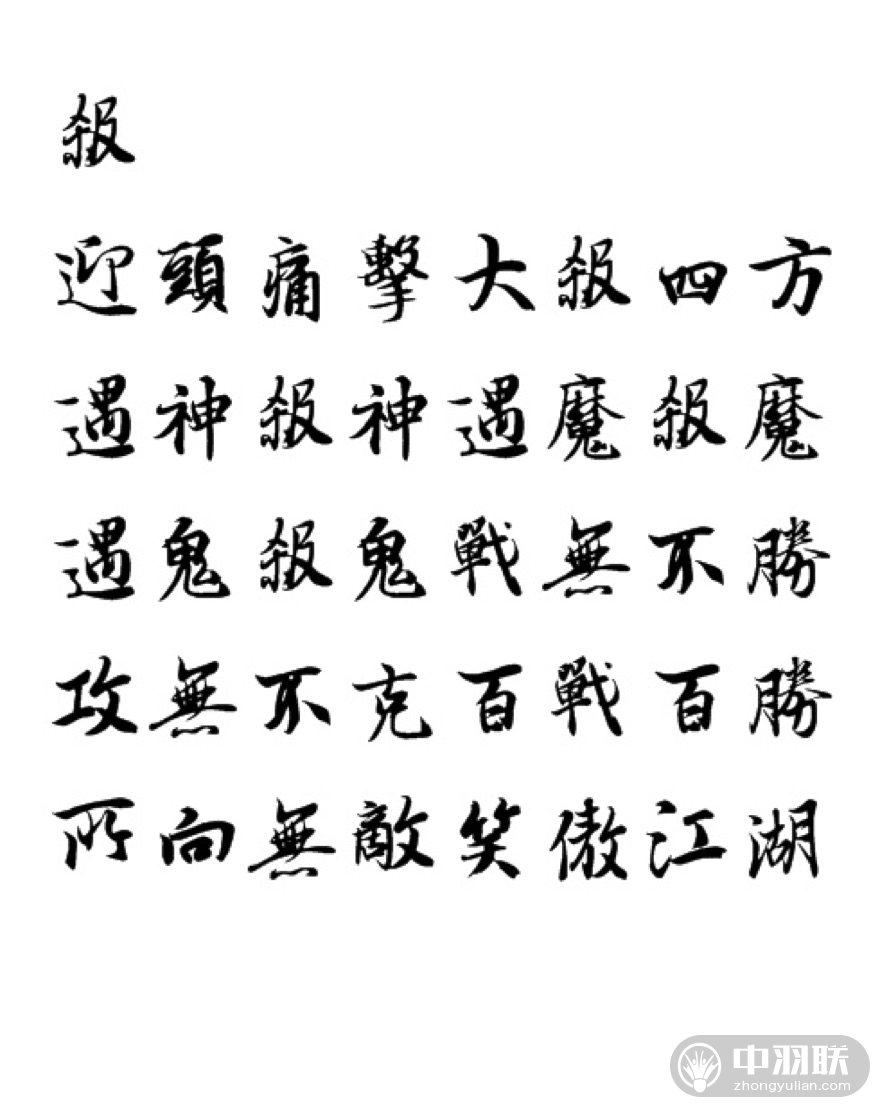 殺
迎頭痛擊大殺四方
遇神殺神遇魔殺魔
遇鬼殺鬼戰無不勝
攻無不克百戰百勝
所向無敵笑傲江湖
中羽联
zhongyulian.com